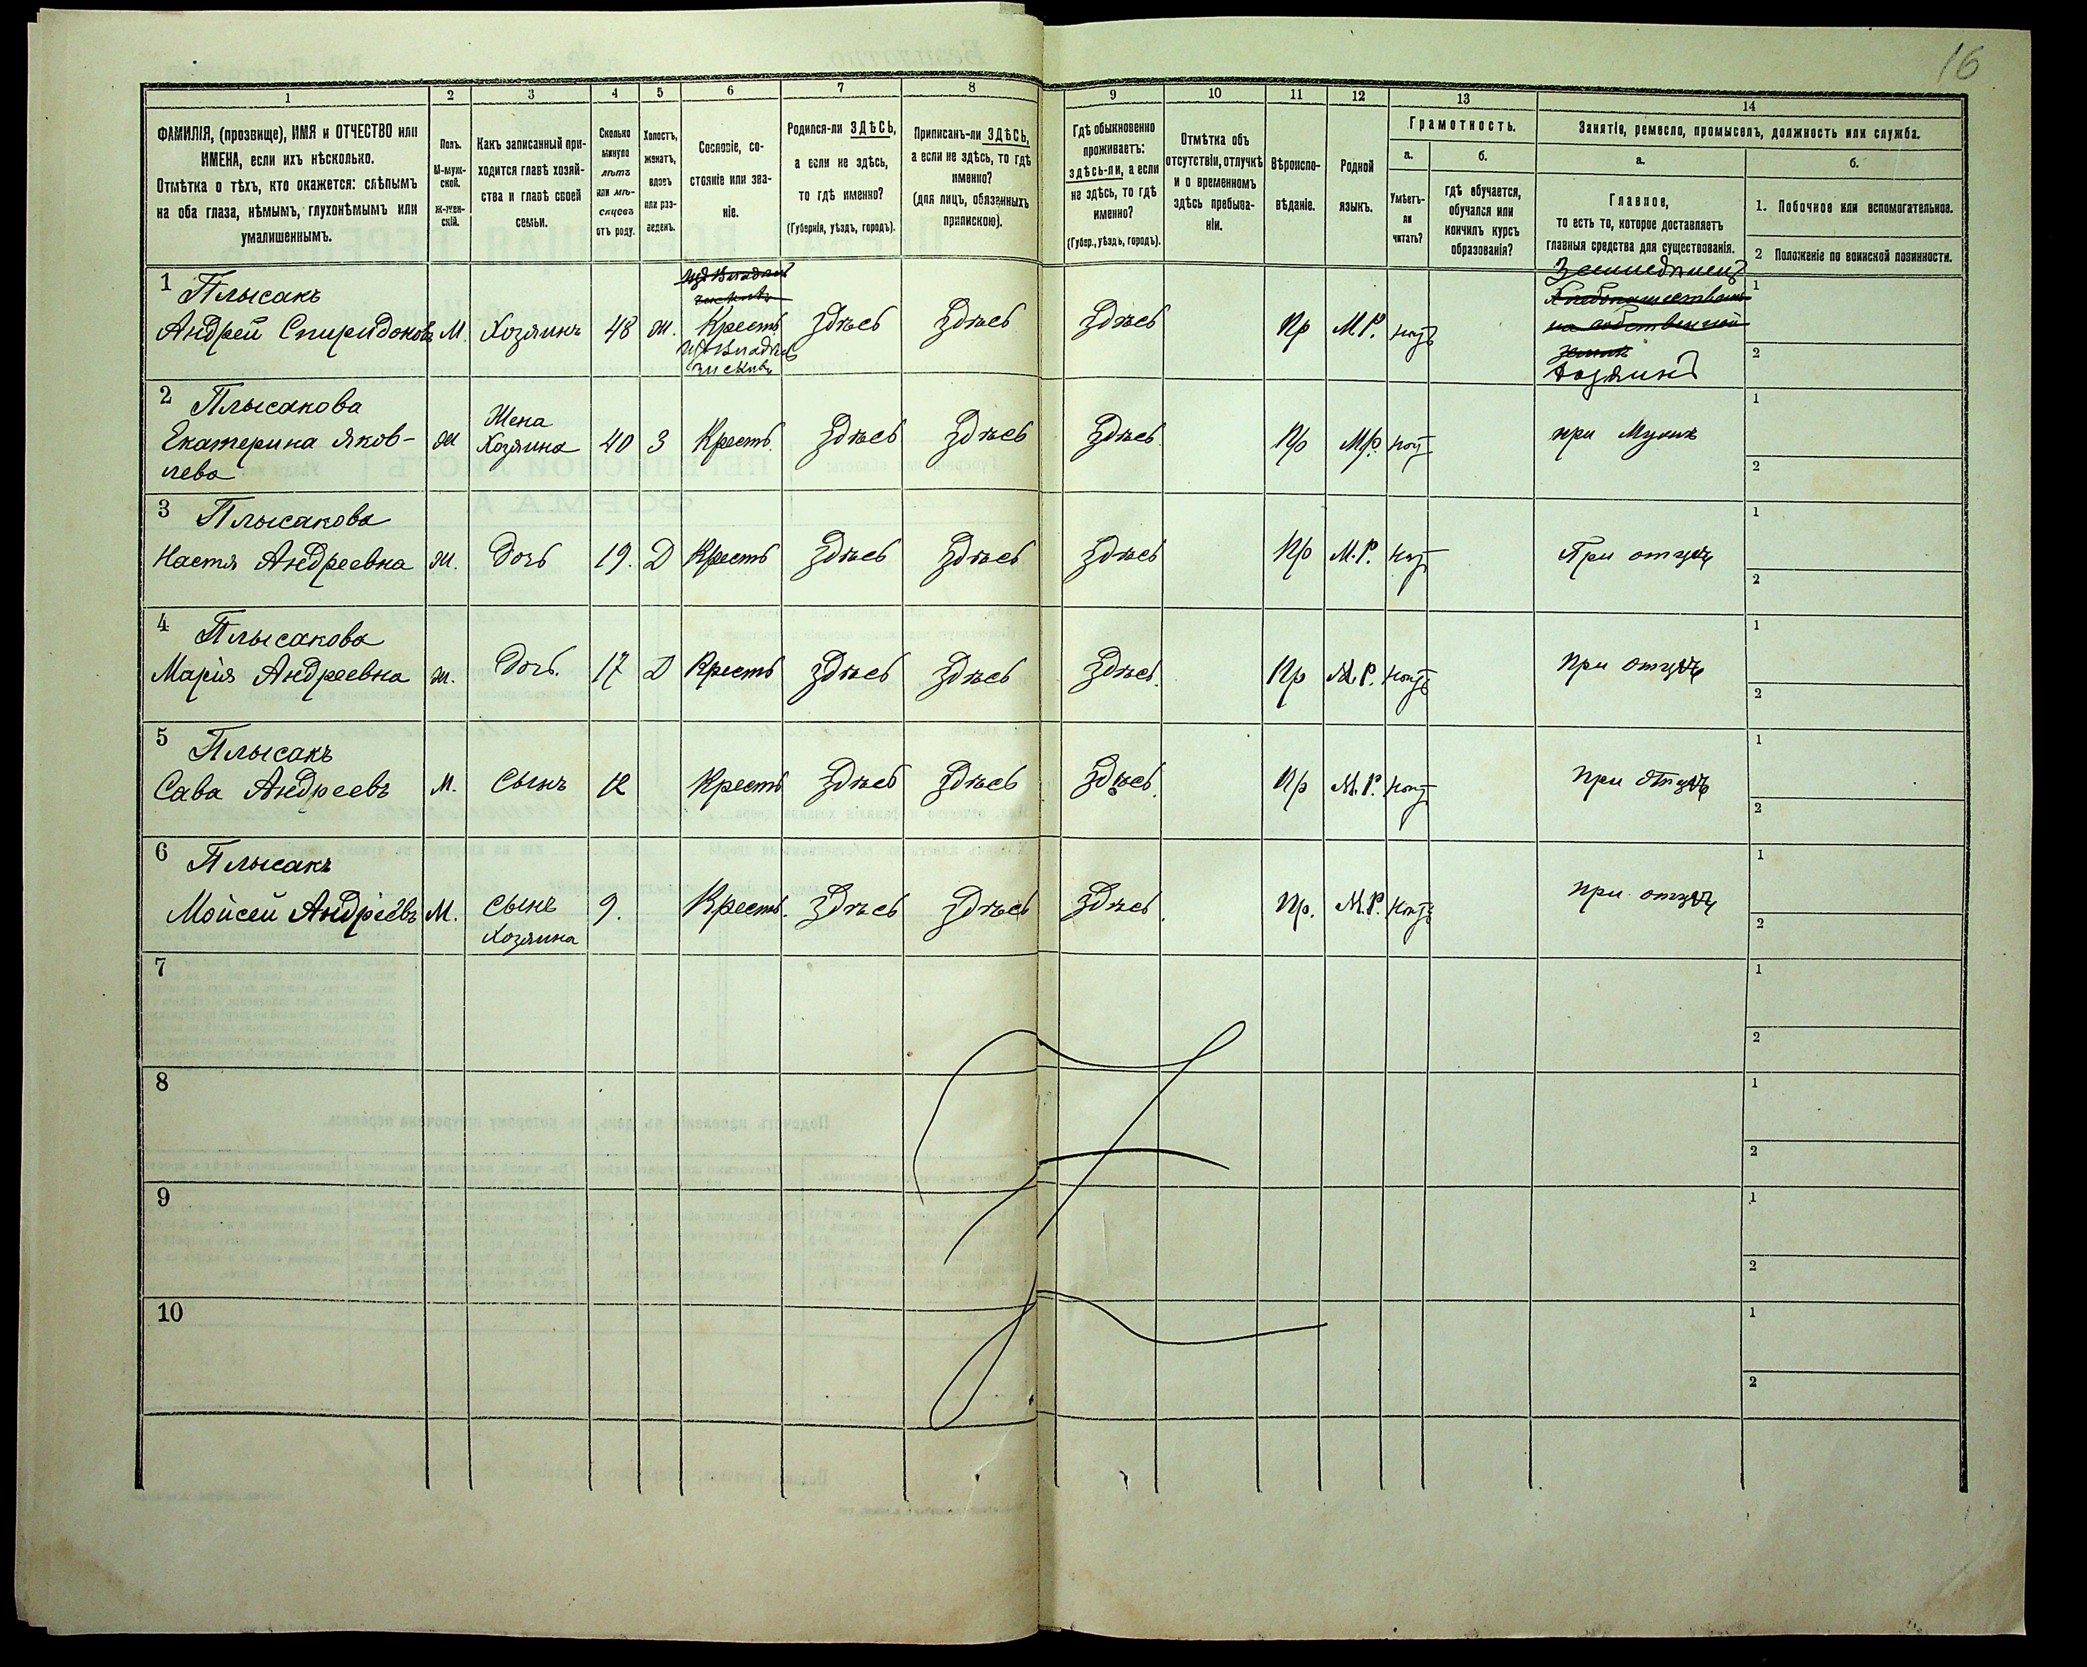 16
1
2
3
4
5
6
7
8
9
10
11
12
13
14
ФАМИЛІЯ, (прозвище), ИМЯ и ОТЧЕСТВО или
ИМЕНА, если ихъ нѣсколько.
Отмѣтка о тѣхъ, кто окажется: слѣпымъ
на оба глаза, нѣмымъ, глухонѣмымъ или
умалишеннымъ.
Полъ.
М-муж-
ской.
Ж-жен-
скій.
Какъ записанный при-
ходится главѣ хозяй-
ства и главѣ своей
семьи.
Сколько
минуло
лѣтъ
или мѣ-
сяцевъ
отъ роду.
Холостъ,
женатъ,
вдовъ
или раз-
веденъ.
Сословіе, со-
стояніе или зва-
ніе.
Родился-ли ЗДѢСЬ,
а если не здѣсь,
то гдѣ именно?
(Губернія, уѣздъ, городъ).
Приписанъ-ли ЗДѢСЬ,
а если не здѣсь, то гдѣ
именно?
(для лицъ, обязанныхъ
припискою).
Гдѣ обыкновенно
проживаетъ:
здѣсь-ли, а если
не здѣсь, то гдѣ
именно?
(Губер., уѣздъ, городъ).
Отмѣтка объ
отсутствіи, отлучкѣ
и о временномъ
здѣсь пребыва-
ніи.
Вѣроиспо-
вѣданіе.
Родной
языкъ.
Грамотность.
а.
Умѣетъ-
ли
читать?
б.
гдѣ обучается,
обучался или
кончилъ курсъ
образованія?
Занятіе, ремесло, промыселъ, должность или служба.
а.
Главное,
то есть то, которое доставляетъ
главныя средства для существованія.
б.
1. Побочное или вспомогательное.
2 Положеніе по воинской повинности.
1 Плысакъ
Андрей Спиридоновъ М. Хозяинъ 48 ж. Крест. Здѣсь Здѣсь Здѣсь Пр М.Р. нѣтъ
Земледѣлецъ
Хозяинъ
1
2
2 Плысакова
Екатерина Яков-
лева ж Жена
Хозяина 40 З Крестъ. Здѣсь Здѣсь Здѣсь. Пр М.р. нѣт при Мужѣ
1
2
3 Плысакова
Настя Андреевна ж. Дочь 19. Д Крестъ Здѣсь Здѣсь Здѣсь Пр М.Р. нѣт При отцѣ
1
2
4 Плысакова
Марія Андреевна ж. Дочь. 17 Д Крестъ Здѣсь Здѣсь Здѣсь. Пр М.Р. нѣтъ при отцѣ
1
2
5 Плысакъ
Сава Андреевъ М. Сынъ 12 Крестъ Здѣсь Здѣсь Здѣсь. Пр М.Р. нѣт при отцѣ
1
2
6 Плысакъ
Мойсей Андріевъ М. Сынъ
Хозяина 9. Крестъ. Здѣсь Здѣсь Здѣсь. Пр. М.Р. нѣтъ при отцѣ
1
2
7
1
2
8
1
2
9
1
2
10
1
2